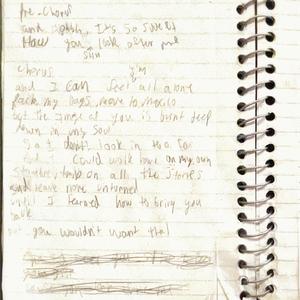 Pre-Chorus
and oohhh, It's so sweet
How you look after me
still
Chorus
and I can feel all alone
Pack my bags move to Mexico
but the image of you is burnt deep
down in my soul
So I don't look in too far
But I could walk home on my own
on all the stones
and leave none unturned
until I learned how to bring you
back
but you wouldn't want that